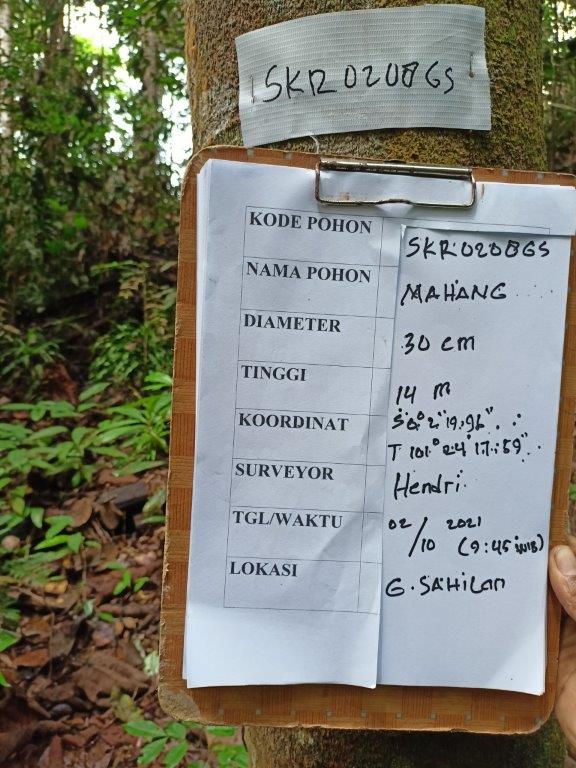 SKR0208GS
KODE POHON SKR0208GS
NAMA POHON MAHANG
DIAMETER 30 cm
TINGGI 14 M
KOORDINAT S 0° 2' 19.96"
T 101° 24' 17.59"
SURVEYOR Hendri
TGL/WAKTU 02/10 2021 (9:45 WIB)
LOKASI G. SAHiLan